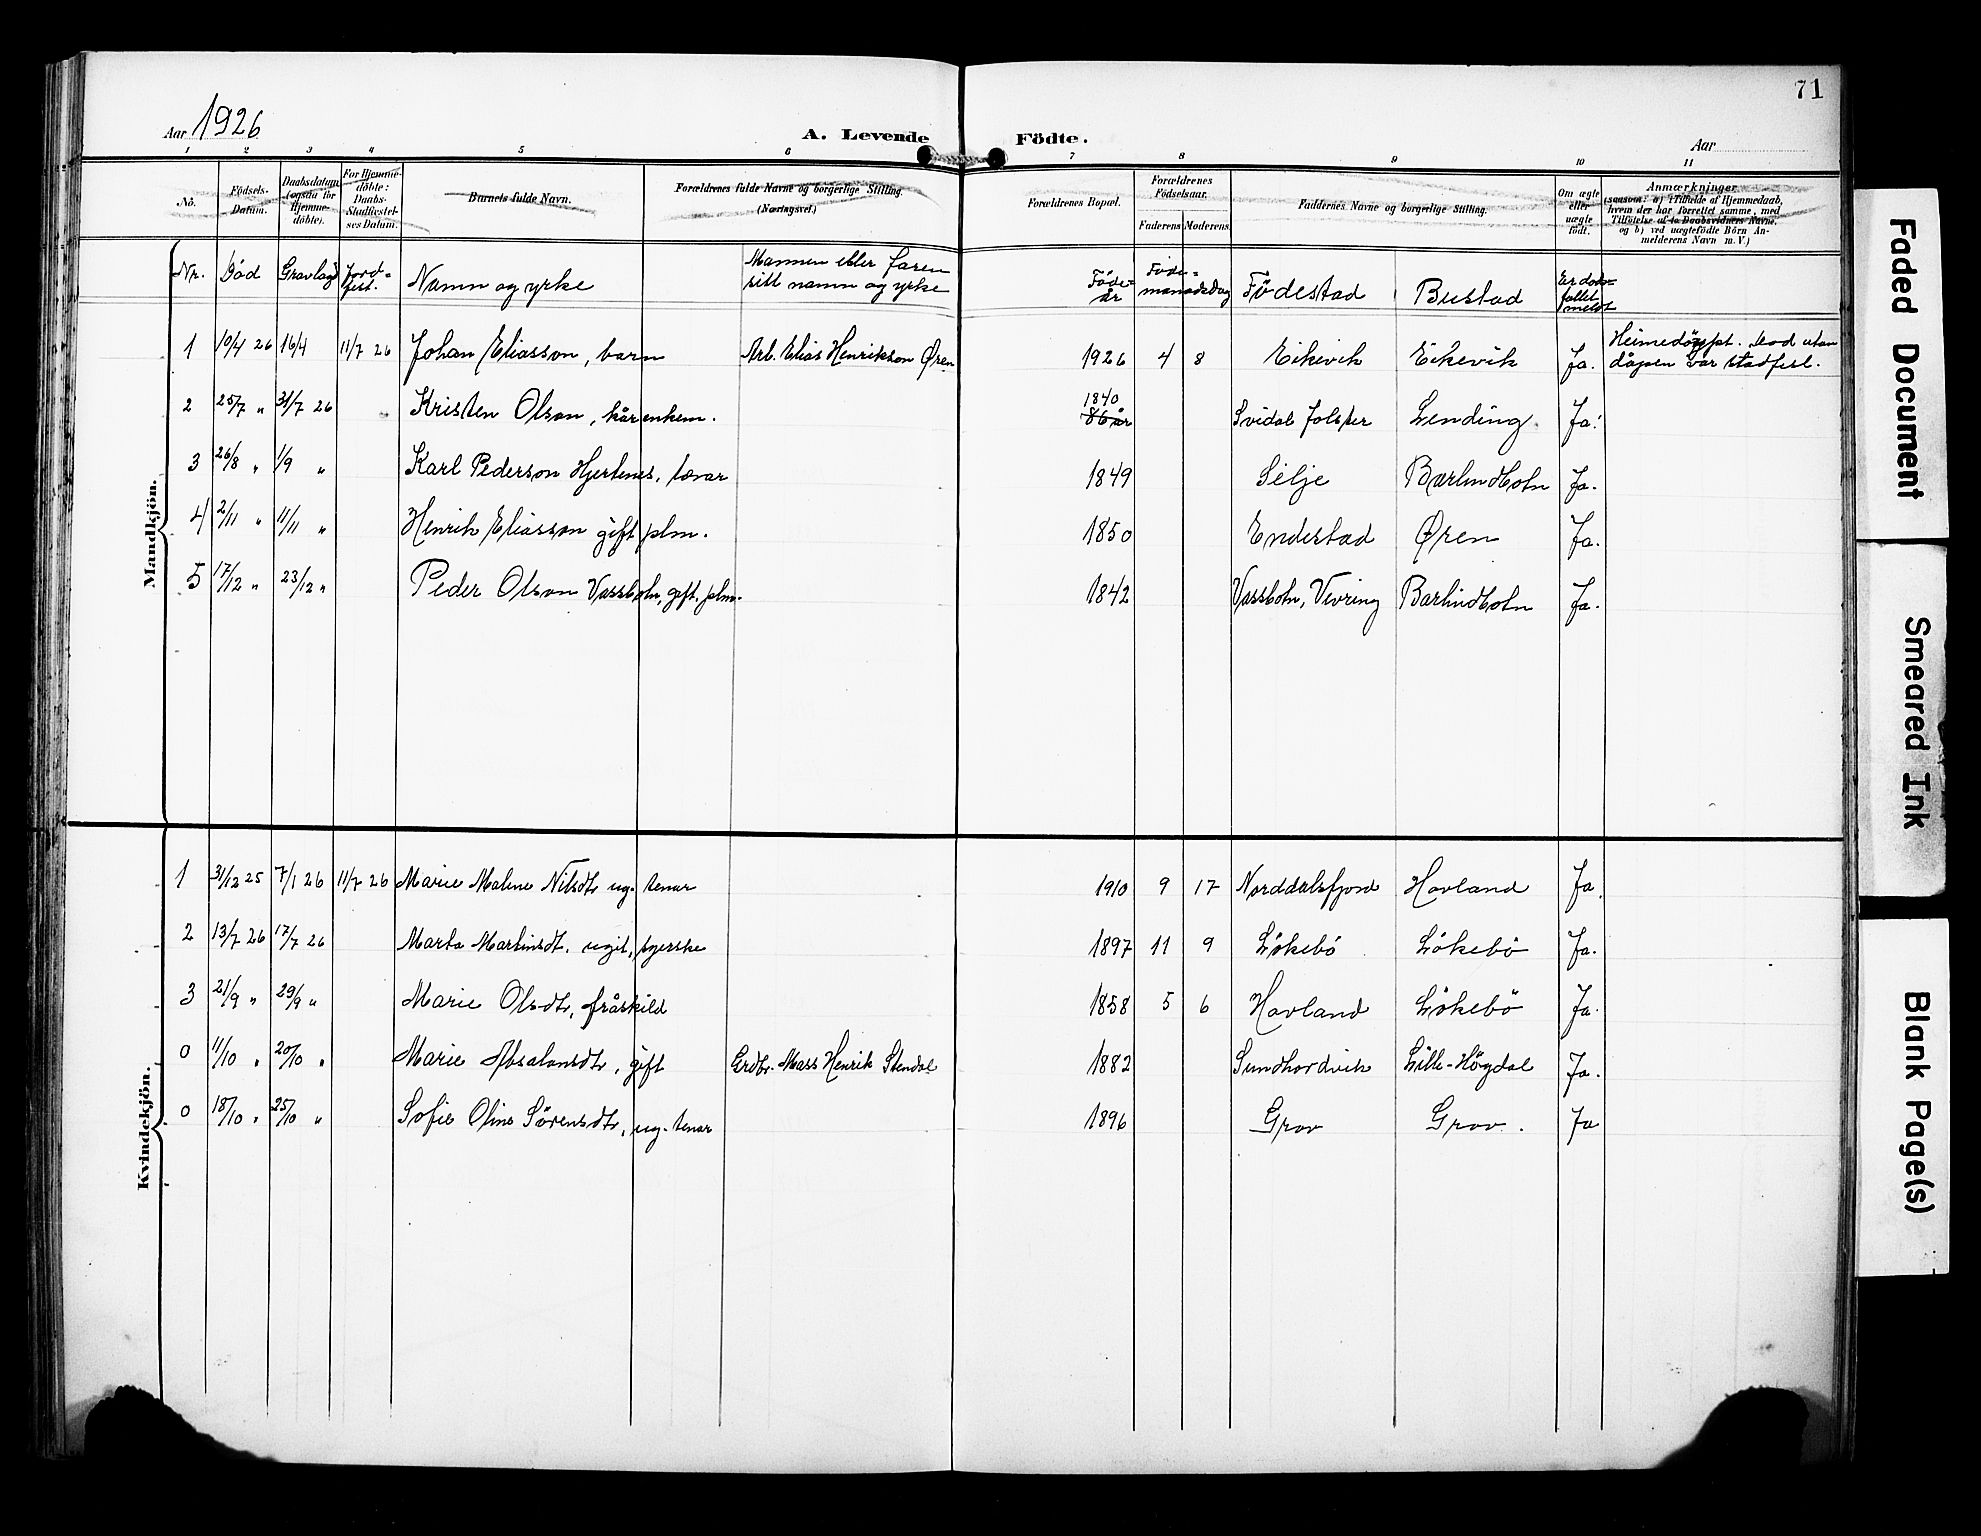 71
Aar 1926
A. Levende Födte.
Aar
1 2 3 4 5 6 7 8 9 10 11
No. Födsels-Datum. Daabsdatum (ogsaa for Hjemmedöbte). For Hjemmedöbte: Daabs-Stadfæstelses Datum. Barnets fulde Navn. Forældrenes fulde Navne og borgerlige Stilling. (Næringsvei.) Forældrenes Bopæl. Forældrenes Födselsaar. Faderens Moderens Faddernes Navne og borgerlige Stilling. Om ægte eller uægte födt. Anmærkninger (saasom: a) i Tilfælde af Hjemmedaab, hvem der har forrettet samme, med Tilföielse af to Daabsvidners Navne. og b) ved uægtefödte Börn Anmelderens Navn m. V.)
Nr. Död Gravlag Jordfest. Namn og yrke Mannen eller faren sitt namn og yrke Födeår Föde-månadsdag Födestad Bustad Er dödsfallet meldt
Mandkjön.
1 10/4 26 16/4 11/7 26 Johan Eliasson, barn Arb. Elias Henrikson Øren 1926 4 8 Eikevik Eikevik Ja. Heimedöypt. Död utan dåpen var stadfest.
2 25/7 " 31/7 26 Kristen Olson, kårenkem. 1840 86 år Svidal Jolster Lending. Ja.
3 26/8 " 1/9 " Karl Pederson Hjertenes, tenar 1849 Selje Barlindbotn Ja.
4 2/11 " 11/11 " Henrik Eliasson gift plm. 1850 Endestad Øren Ja.
5 17/12 " 23/12 " Peder Olson Vassbotn, gift. plm. 1842 Vassbotn, Vevring Barlindbotn Ja.
Kvindekjön.
1 31/12 25 7/1 26 11/7 26 Marie Maline Nilsdtr ug. tenar 1910 9 17 Norddalsfjord Hovland Ja.
2 13/7 26 17/7 26 Marta Martinsdt. ugit, syerske 1897 11 9 Lökebö Lökebö Ja.
3 21/9 " 29/9 " Marie Olsdtr, fråskild 1858 5 6 Hovland Lökebö Ja.
0 11/10 " 20/10 " Marie Absalonsdtr, gift Grdbr. Mass Henrik Stendal 1882 Sundhordvik Lille-Högdal Ja.
0 18/10 " 25/10 " Sofie Oline Sörensdtr, ug. tenar 1896 Grov Grov. Ja
Faded Document
Smeared Ink
Blank Page(s)